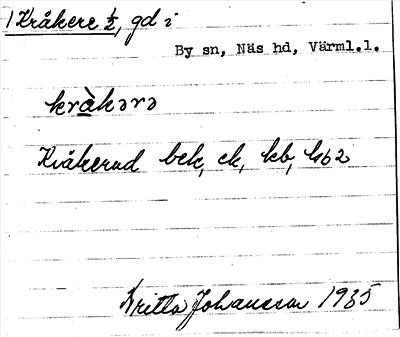 1 Kråkere ½, gd i
By sn, Näs hd, Värml.l.
kràkərə
Kråkerud bek, ek, kb, hb2
Britta Johansson 1935